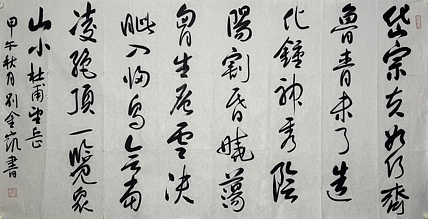 岱宗夫如何齊
魯青未了造
化鍾神秀陰
陽割昏曉蕩
胷生层雲決
眦入归鸟會當
凌绝頂一覽衆
山小 杜甫望岳
甲午秋月刘金凯書